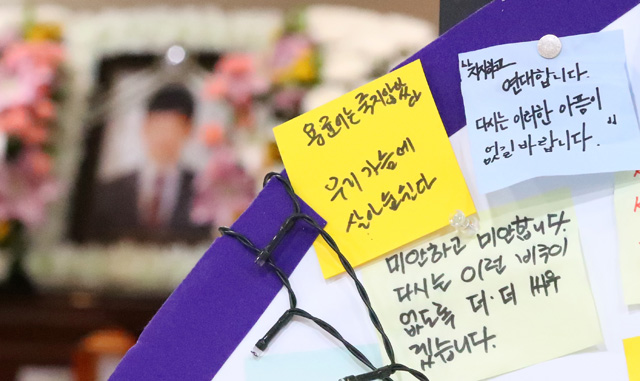 용균이는 죽지않았
우리 가슴에
살아숨쉰다
연대합니다.
다시는 이러한 아픔이
없길 바랍니다.
미안하고 미안합니다.
다시는 이런 비극이
없도록 더·더 싸우
겠습니다.